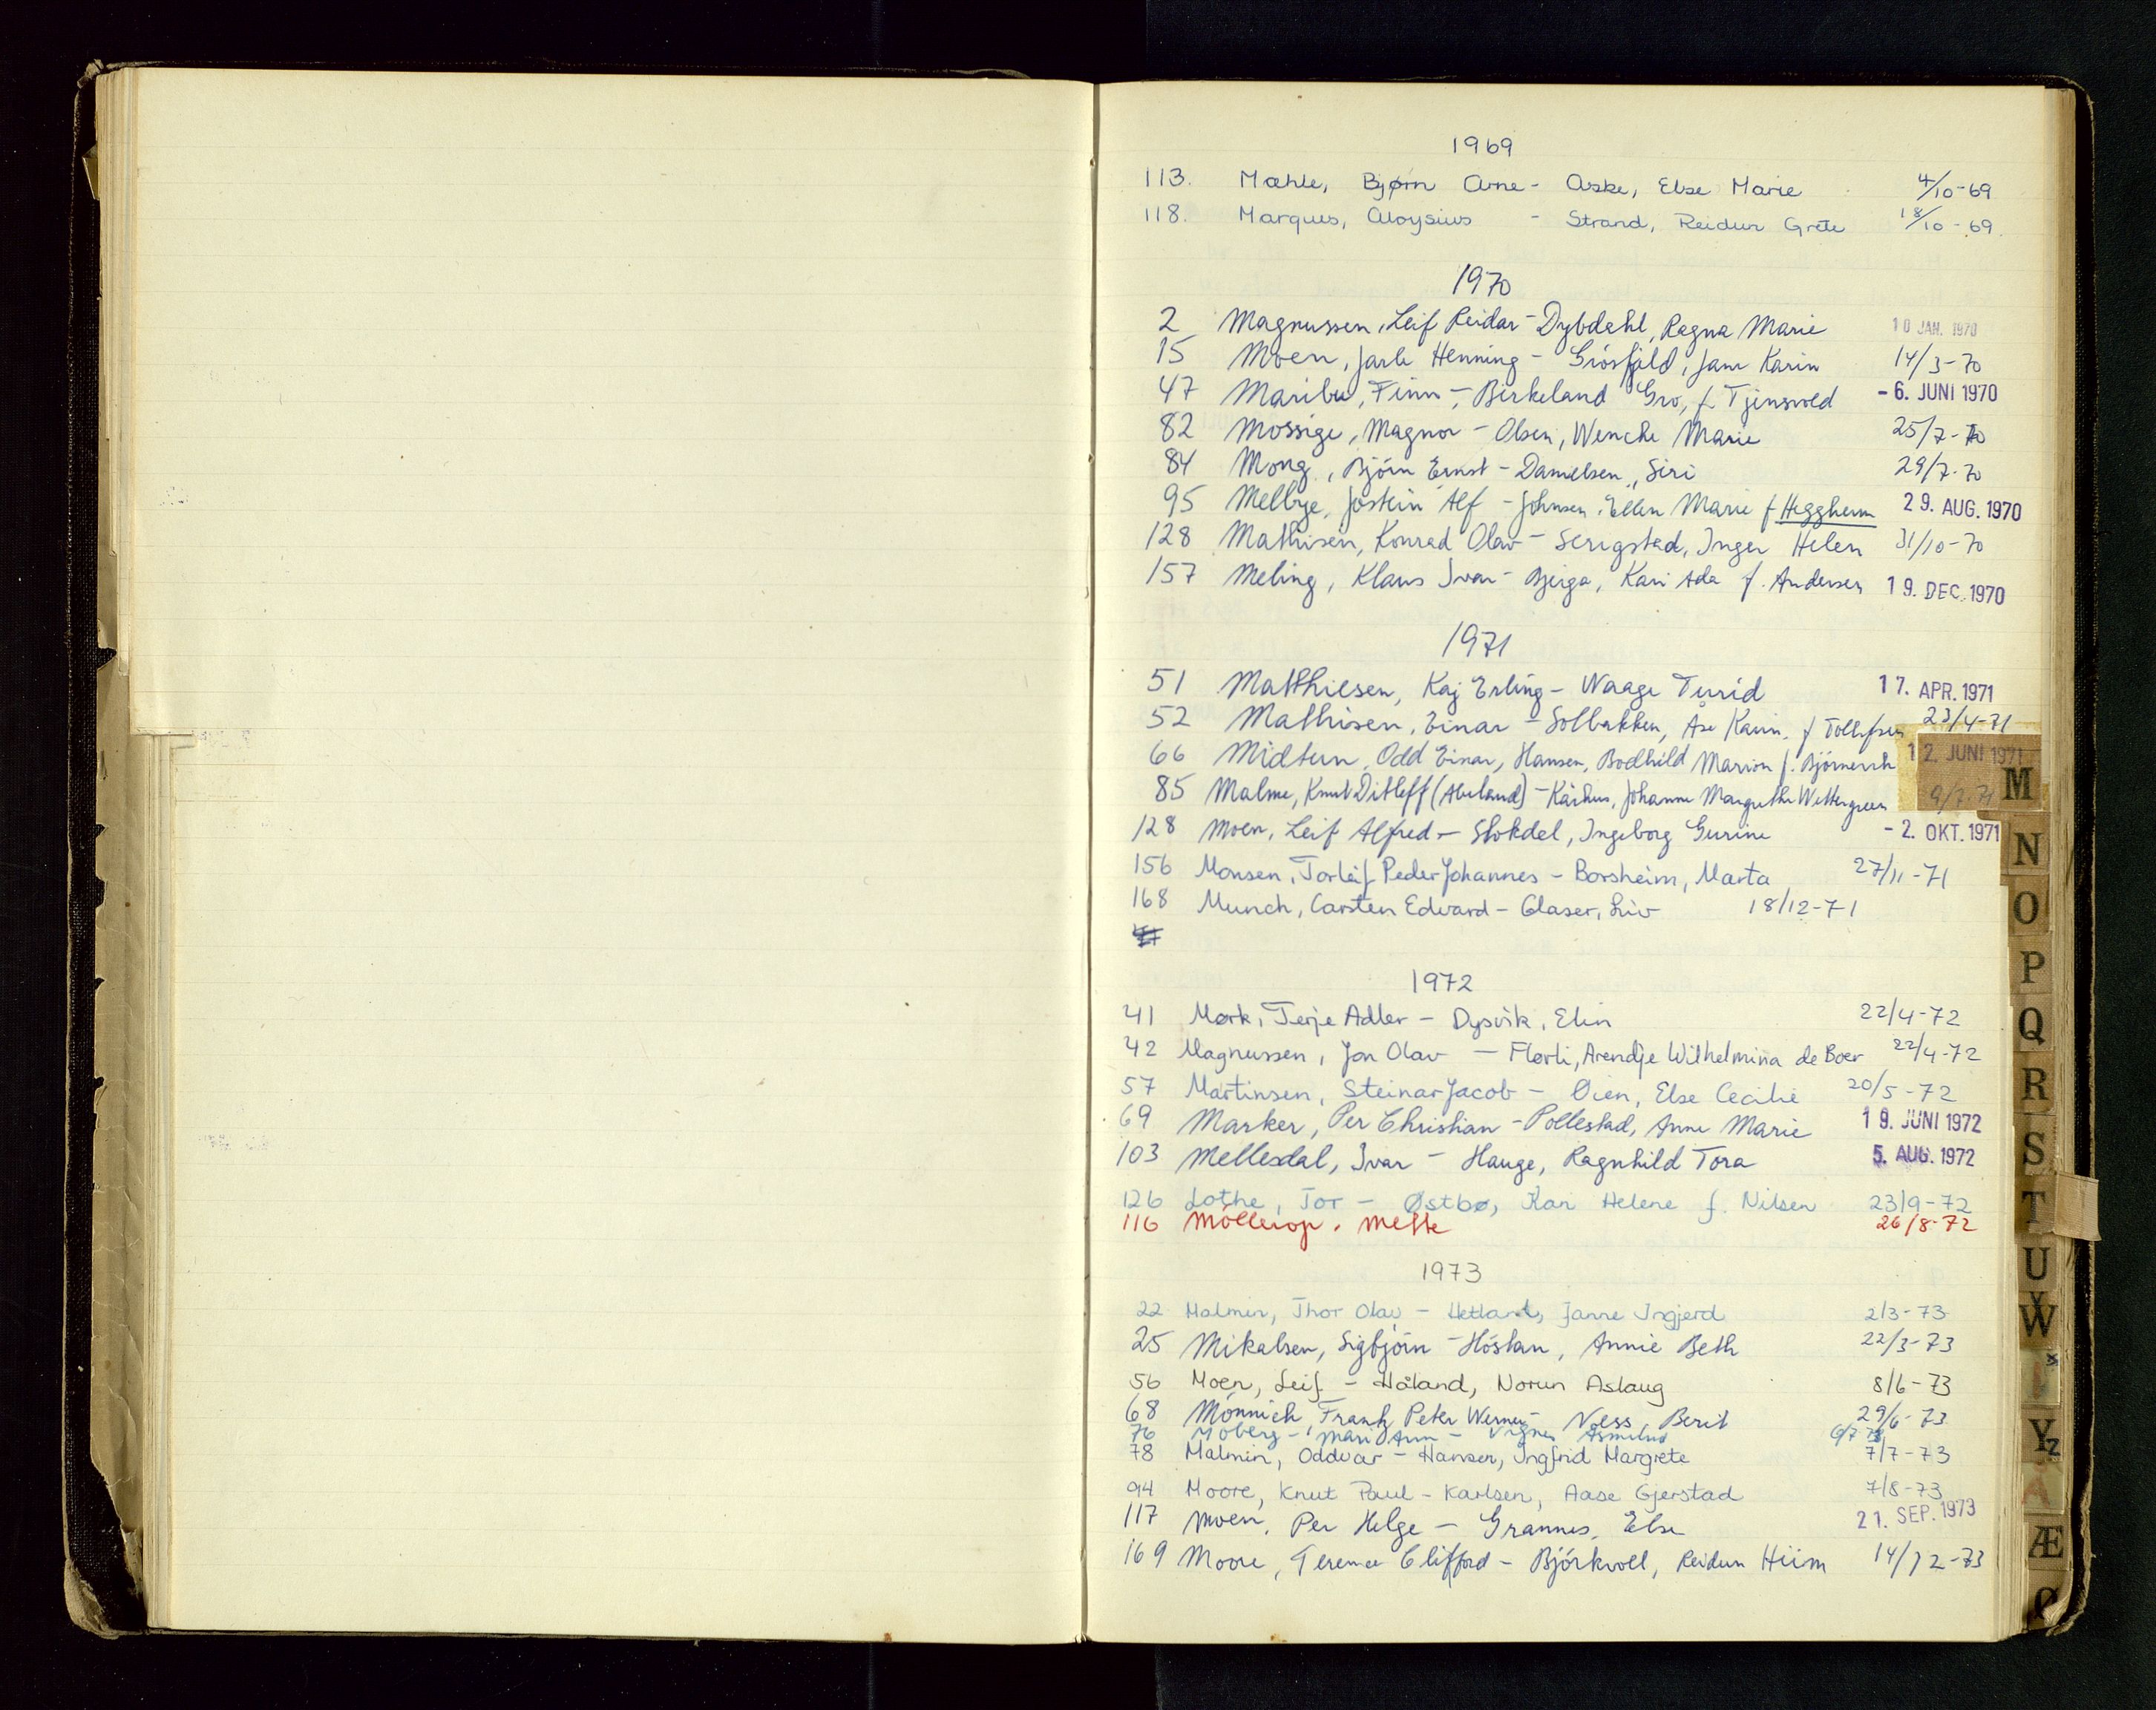 1969
113. Mæhle, Bjørn Arne - Aske, Else Marie 4/10-69
118. Marques, Aloysius - Strand, Reidun Grete 18/10-69
1970
2 Magnussen, Leif Reidar - Dybdahl, Ragna Marie 10 JAN. 1970
15 Moen, Jarle Henning - Grösfjeld, Jane Karin 14/3-70
47 Maribu, Finn - Birkeland Gro, f. Tjensvold -6. JUNI 1970
82 Mossige, Magnor - Olsen, Wenche Marie 25/7-70
84 Mong, Björn Ernst - Danielsen, Siri 29/7-70
95 Melbye, Jostein Alf - Johnsen, Ellen Marie f Heggheim 29. AUG. 1970
128 Mathisen, Konrad Olav - Serigstad, Inger Helen 31/10-70
157 Meling, Klaus Ivar - Bjerga, Kari Ada f. Andersen 19. DEC. 1970
1971
51 Matthiesen, Kaj Erling - Waage Turid 17. APR. 1971
52 Mathisen, Einar - Solbakken, Åse Karin. f Tollefsen 23/4-71
66 Midtun, Odd Einar, Hansen, Bodhild Marion f. 12. JUNI 1971
85 Malme, Knut Ditleff (Abeland) - Kårhus, Johanne Margrethe Wettergreen 9/7-71
128 Moen, Leif Alfred - Slokdel, Ingeborg Gurine -2. OKT. 1971
156 Monsen, Torleif Peder Johannes - Borsheim, Marta 27/11-71
168 Munch, Carsten Edvard - Glaser, Liv 18/12-71
1972
41 Mørk, Terje Adler - Dysvik, Elin 22/4-72
42 Magnussen, Jon Olav - Flørli, Arendje Wilhelmina de Boer 22/4-72
57 Martinsen, Steinar Jacob - Øien, Else Cecilie 20/5-72
69 Marker, Per Christian - Pollestad, Anne Marie 19. JUNI 1972
103 Mellesdal, Ivar - Hauge, Ragnhild Tora 5. AUG. 1972
126 Lothe, Tor - Østbø, Kari Helene f. Nilsen 23/9-72
116 Möllerop, Mette 26/8-72
1973
22 Malmin, Thor Olav - Hetland, Janne Ingjerd 2/3-73
25 Mikalsen, Sigbjörn - Höstan, Annie Beth 22/3-73
56 Moen, Leif - Håland, Norun Aslaug 8/6-73
68 Mönnich, Frank Peter Werner - Næss, Berit 29/6-73
76 Moberg - Mari Ann - Vignes 6/7-73
78 Malmin, Oddvar - Hansen, Ingfrid Margrete 7/7-73
94 Moore, Knut Paul - Karlsen, Aase Gjerstad 7/8-73
117 Moen, Per Helge - Grannes, Else 21. SEP. 1973
169 Moore, Terence Clifford - Björkvoll, Reidun Hiim 14/12-73
M
N
O
P
Q
R
S
T
U
V
W
X
Y
Z
Æ
Ø